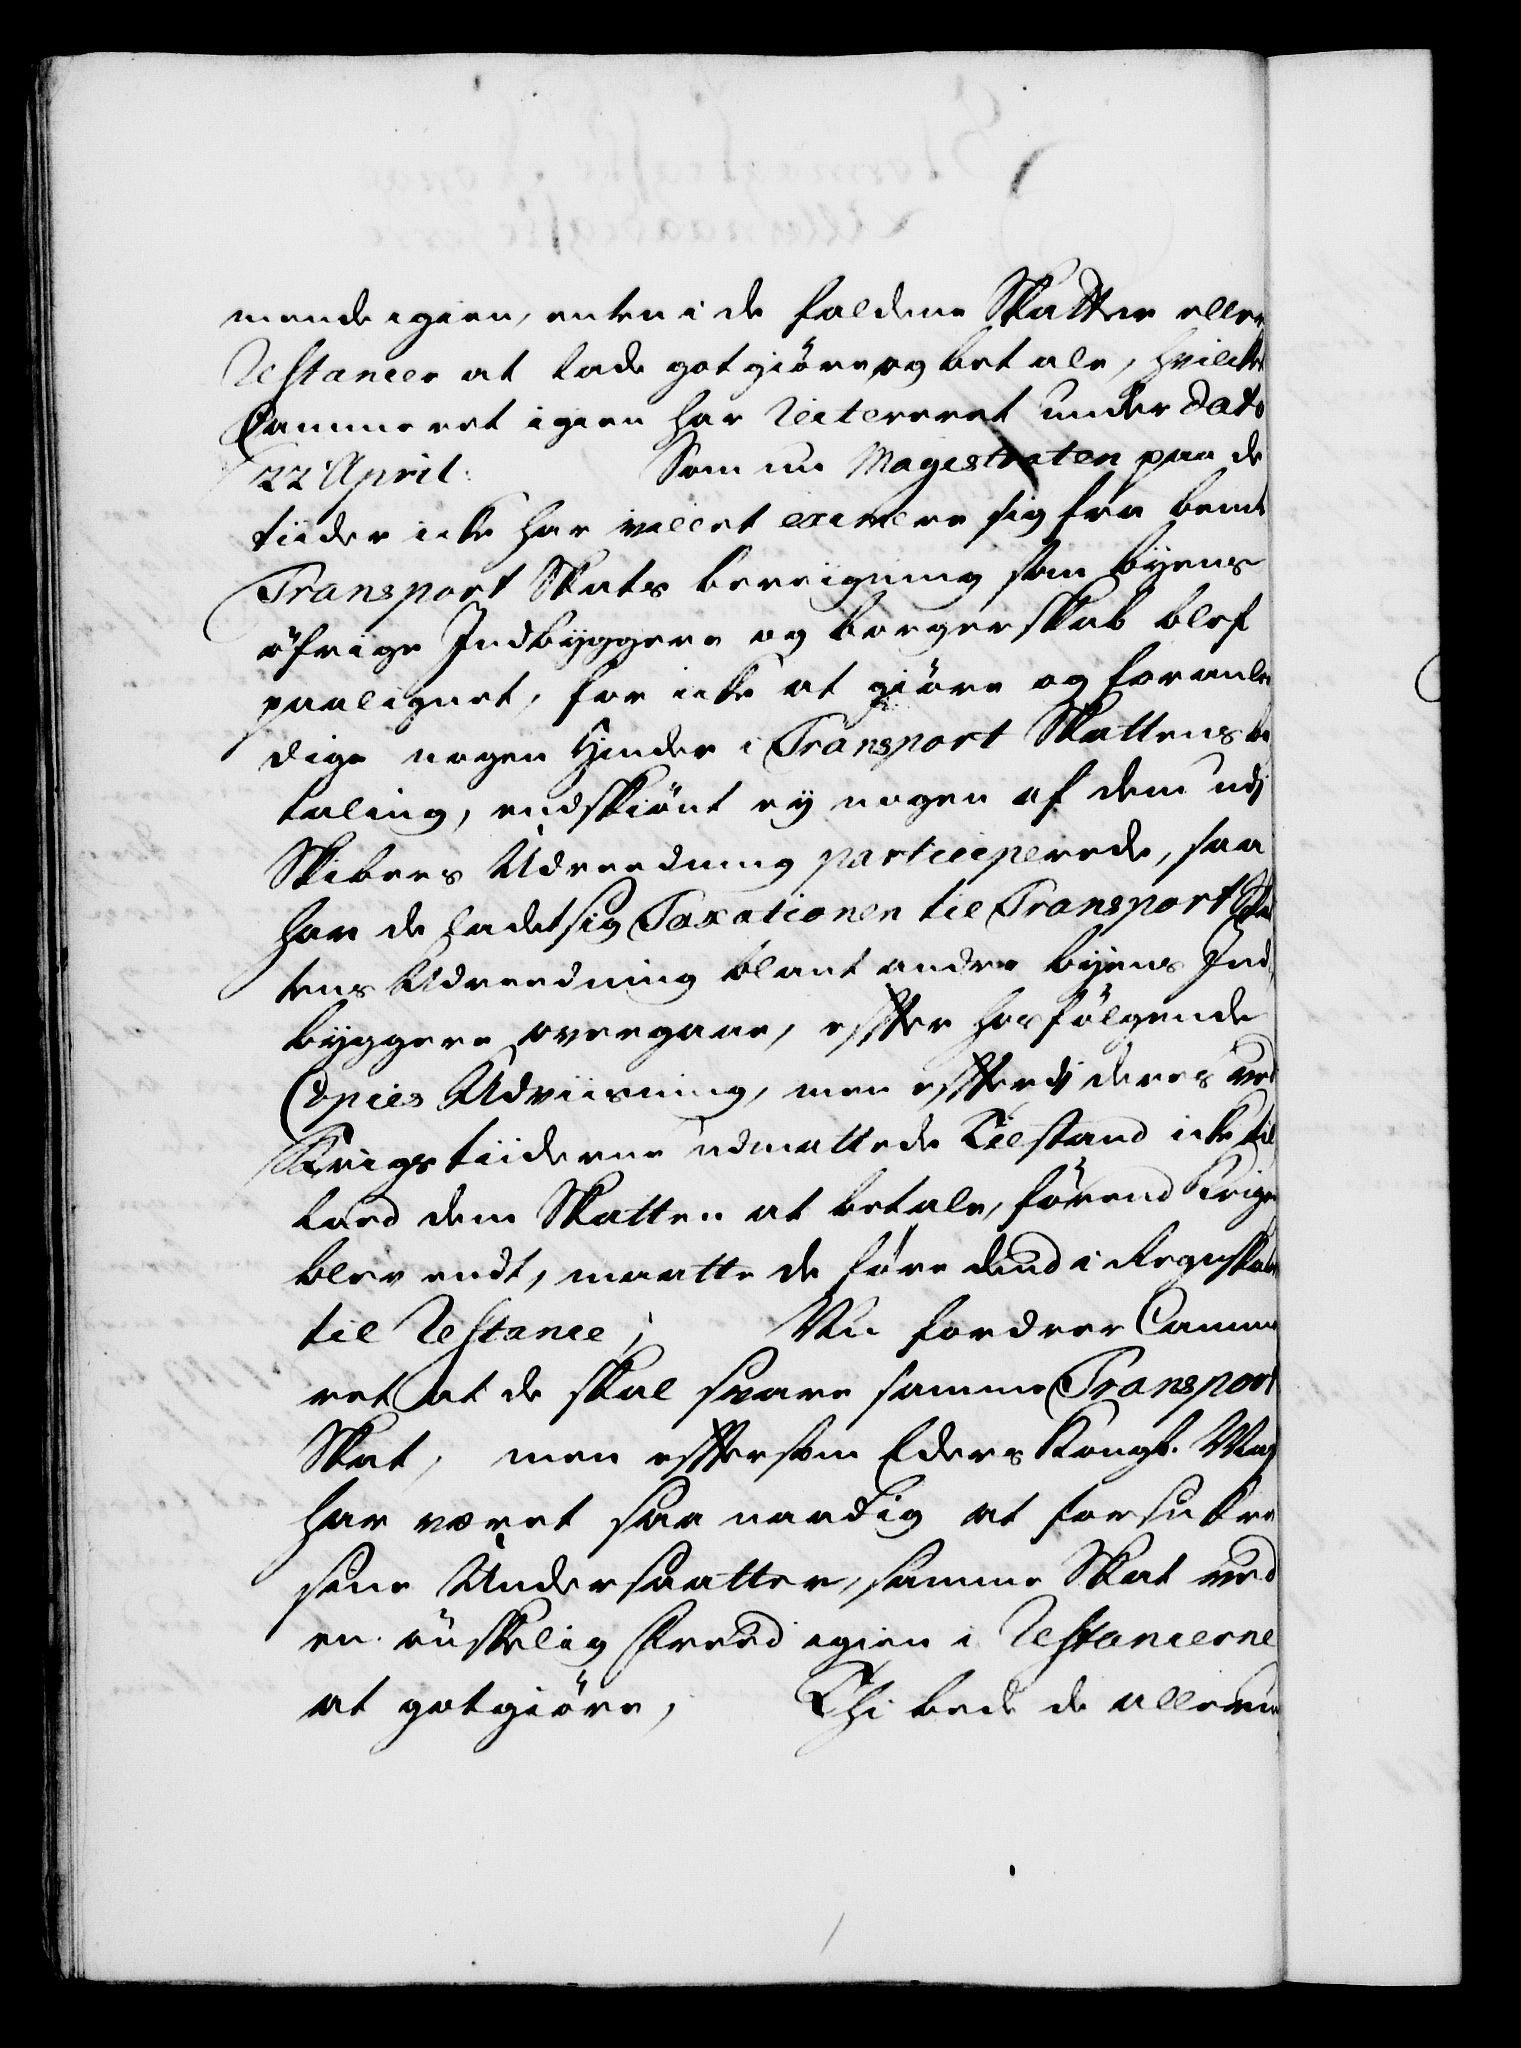 mende igien, enten i de faldene Skatter eller
Restancer at lade gotgiøre og betale, hvilcket
Cammeret igien har reitereret under dato
22 April. Som nu Magestraten paa de
tiider icke har villet eximere sig fra bemte
Transport Skats bereigning som byens
öfrige Indbyggere og borgerskab blef
paalignet, for icke at giöre og foranle
dige nogen Hinder i Transport Skattens be
taling, endskiönt ey nogen af dem udj
Skibers Udreedning participerede, saa
har de ladet sig Taxationen til Transport Skat
tens Udreedning blant andre byens Ind
byggere overgaae, effter hosfölgende
Copies Udviisning, men effterdj deres ved
Krigstiiderne udmattede Tilstand icke til
lood dem Skatten at betale, förend Krigen
blev endt, maatte de före dend i Regnskabet
til Restance; Nu fordrer Camme
ret at de skal svare samme Transport
Skat, men efftersom Eders Kongl. May
har været saa naadig at forsickre
sine Undersaatter, samme Skat ved
en önskelig Freed igien i Restancerne
at gotgiöre, Thi bede de allerun